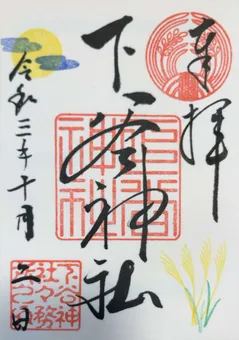 奉拝
下谷神社
下谷
神社
令和三年十月二日
下谷神
社々務
所之印